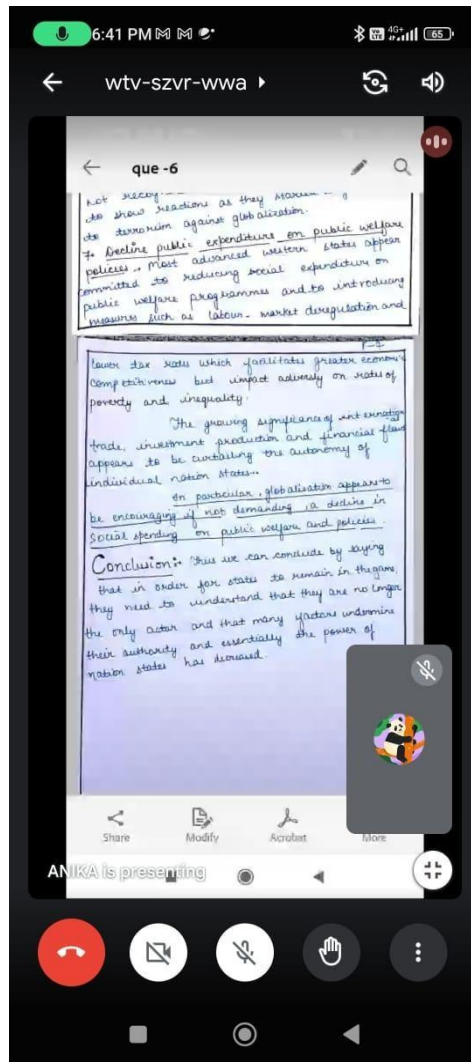 6:41 PM
4G+
65
wtv-szvr-wwa
que -6
not
to show reactions as they
to terrorism against globalization.
7. Decline public expenditure on public welfare
policies.. Most advanced western states appear
committed to reducing social expenditure on
public welfare programmes and to introducing
measures such as labour-market deregulation and
lower tax rates which facilitates greater economic
competitiveness but impact adversely on rates of
poverty and inequality.
The growing significance of internation
trade, investment production and financial flows
appears to be curtailing the autonomy of
individual nation states..
In particular, globalisation appears to
be encouraging if not demanding, a decline in
social spending on public welfare and policies.
Conclusion:- Thus we can conclude by saying
that in order for states to remain in the game,
they need to understand that they are no longer
the only actor and that many factors undermine
their authority and essentially the power of
nation states has decreased.
Share
Modify
Acrobat
More
ANIKA is presenting